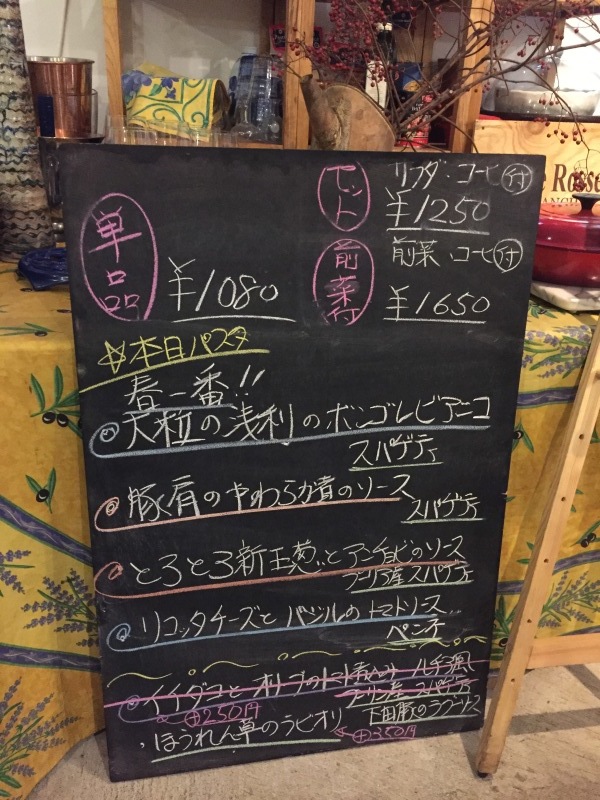 単品
¥1080
セット
サラダ・コーヒー付
¥1250
前菜付
前菜・コーヒー付
¥1650
☆本日パスタ
春一番!!
◎大粒の浅利のボンゴレビアンコ
スパゲティ
◎豚肩のやわらか煮のソース
スパゲティ
◎とろとろ新玉葱とアンチョビのソース
プーリア産スパゲティ
◎リコッタチーズとバジルのトマトソース
ペンネ
◎イイダコとオリーブのトマト煮込み ルチア風
スパゲティ
⊕250円
ほうれん草のラビオリ
豚のラグーソース
⊕350円
Rosse